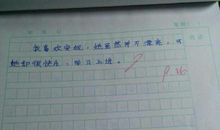 我喜欢安妮，她虽然并不漂亮，可
她却很快乐，学习上进。
P 26